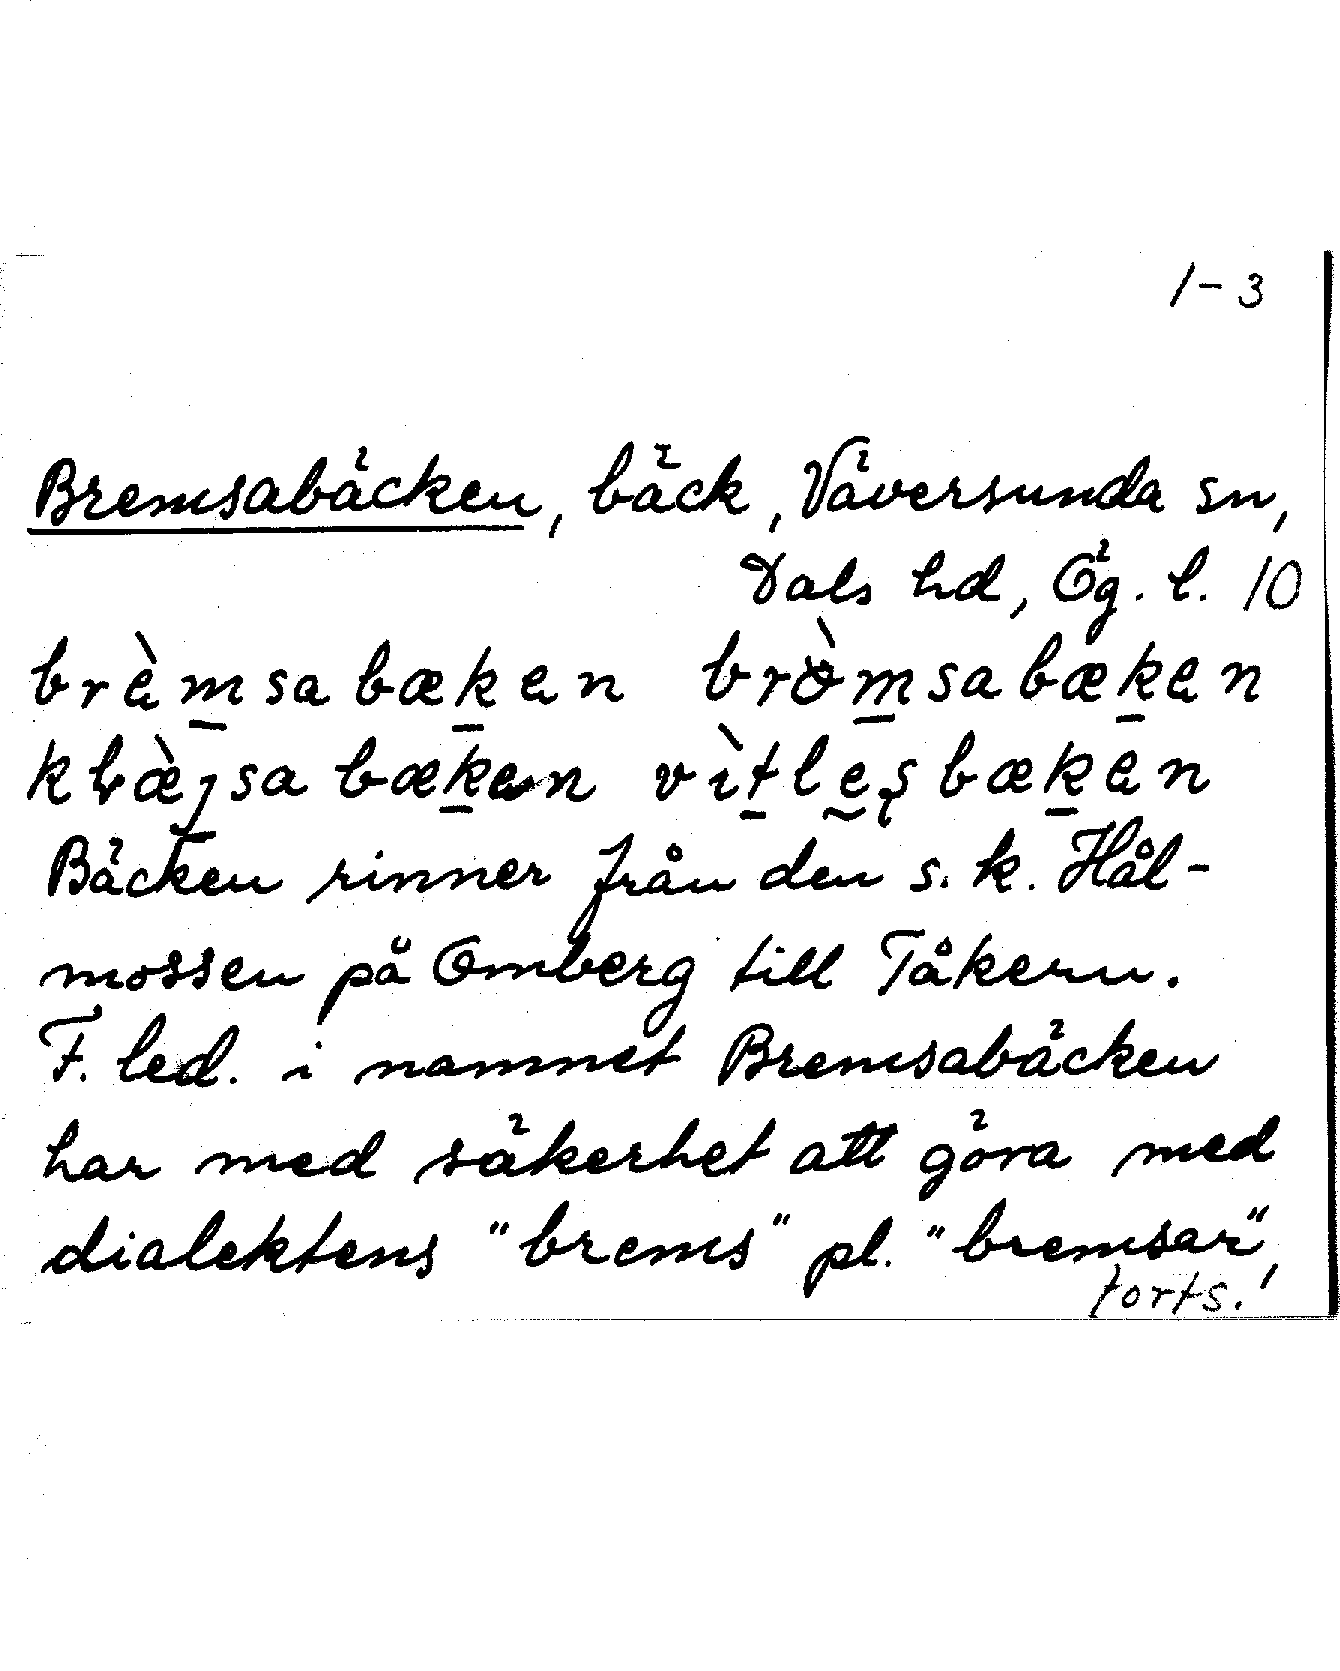 1-3
Bremsabäcken, bäck, Väversunda sn,
Dals hd, Ög. l. 10
brèmsabækɐn bròmsabækɐn
vìtlesbækɐn
Bäcken rinner från den s.k. Hål-
mossen på Omberg till Tåkern.
F. led. i namnet Bremsabäcken
har med säkerhet att göra med
dialektens "brems" pl. "bremsar",
forts.